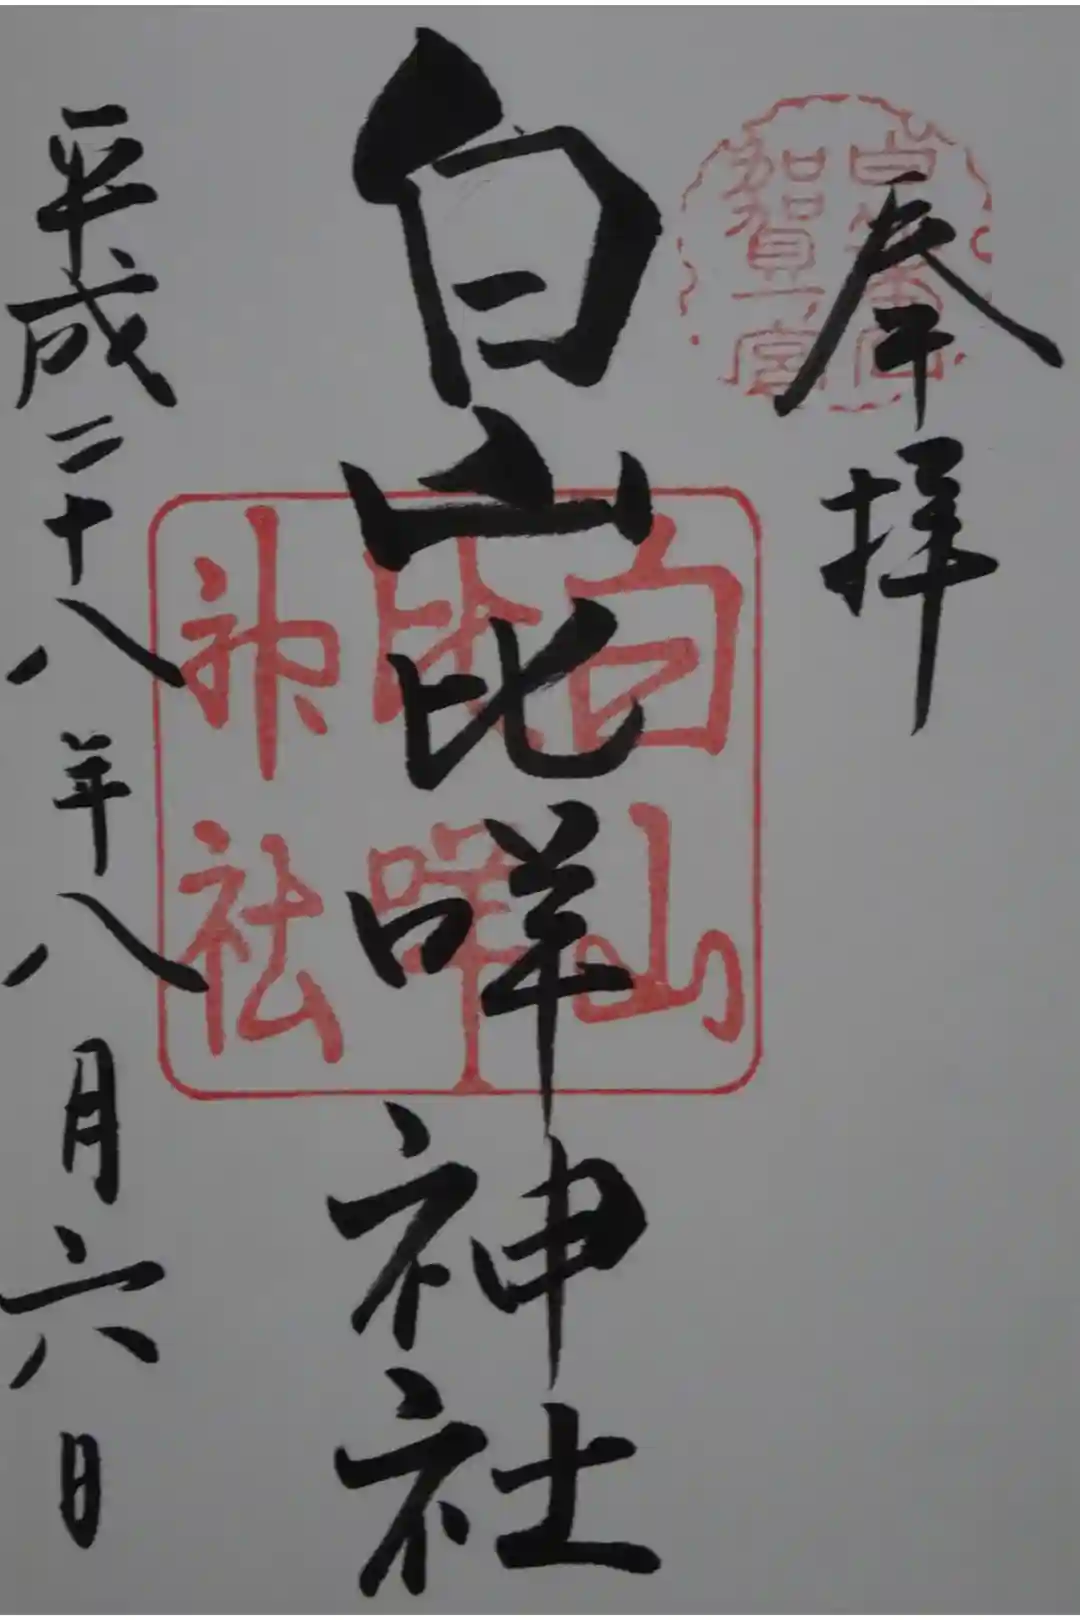 奉拝
白山比咩神社
平成二十八年八月六日
加賀一宮
白山
比咩
神社